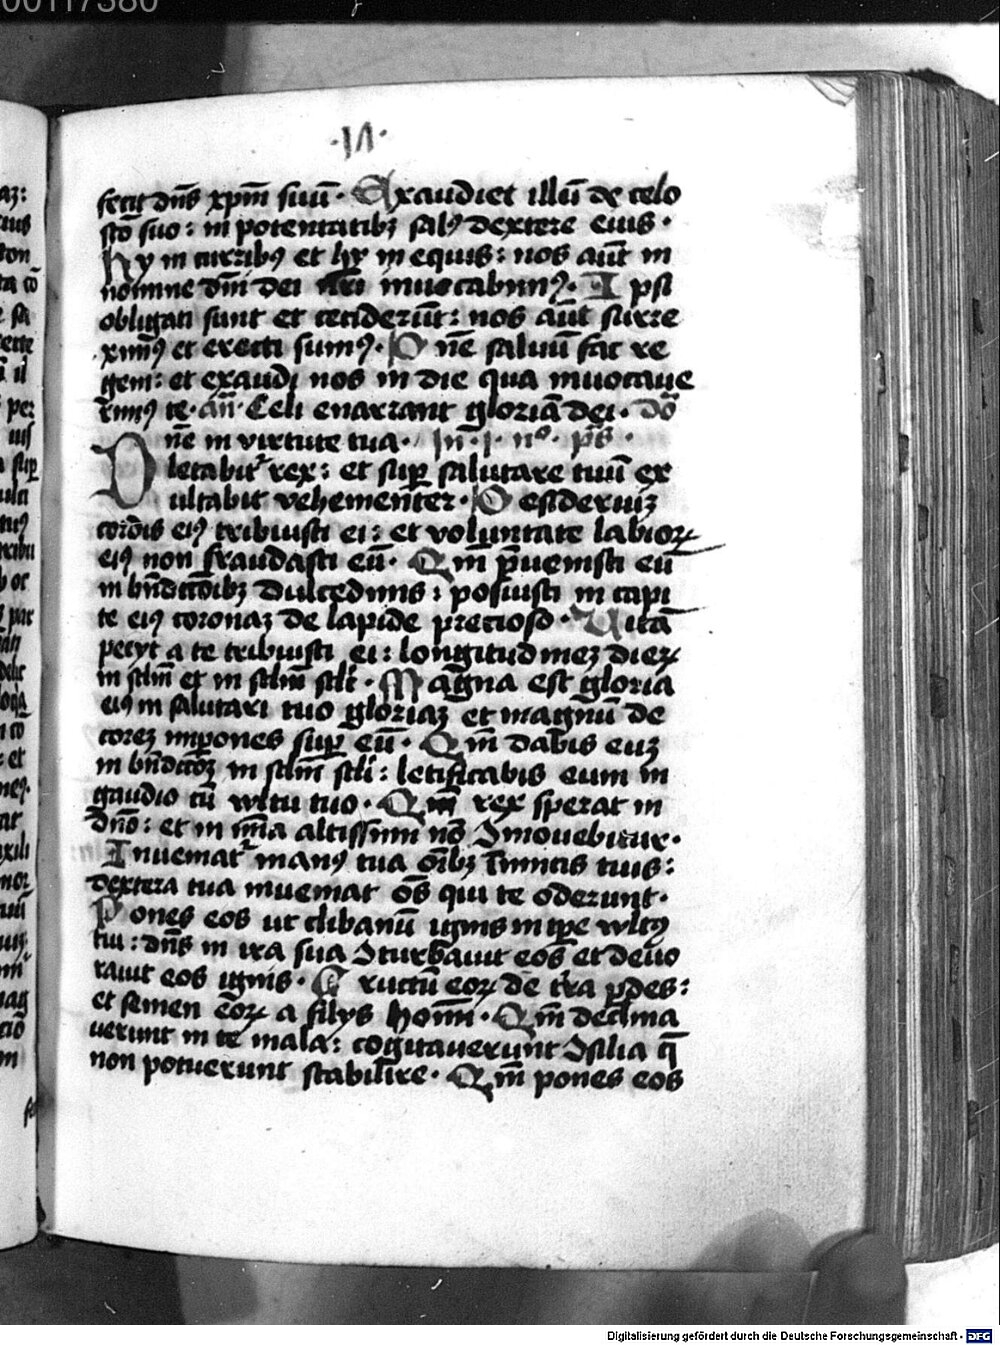 00117380
·14·
fecit dn̄s xp̄m suū · Exaudiet illū de celo
sc̄o suo : in potentatibꝫ salꝰ dextere eius ·
Hy in curribꝰ et hy in equis : nos aūt in
nomine dn̄i dei nr̄i inuocabimꝰ · Ipsi
obligati sunt et cecider̄ūt : nos aūt surre
ximꝰ et erecti sumꝰ · Dn̄e saluū fac re
gem : et exaudi nos in die qua inuocaue
rimꝰ te · an̄ · Celi enarrant gloriā dei · dō
Dn̄e in virtute tua · In · j · n° · ps̄ ·
letabit᷑ rex : et suꝑ salutare tuū ex
ultabit vehementer · Desideriuꝫ
cordis eiꝰ tribuisti ei : et voluntate labioꝝ
eiꝰ non fraudasti eū · Qm̄ p̄uenisti eū
in bn̄dictōibꝫ dulcedinis : posuisti in capi
te eiꝰ coronaꝫ de lapide precioso · Uitā
pecyt a te tribuisti ei : longitudineꝫ dieꝝ
in sclm̄ et in sclm̄ scli · Magna est gloria
eiꝰ in salutari tuo gloriaꝫ et magnū de
coreꝫ inpones suꝑ eū · Qm̄ dabis euꝫ
in bn̄dictōꝫ in sclm̄ scli : letificabis eum in
gaudio cū wltu tuo · Qm̄ rex sperat in
dn̄o : et in mīa altissimi nō ꝯmouebitur ·
Inueniat᷑ manꝰ tua oībꝫ inimicis tuis :
dextera tua inueniat oēs qui te oderunt ·
Pones eos ut clibanū ignis in tꝑe wltꝰ
tui : dn̄s in ira sua ꝯturbauit eos et deuo
rauit eos ignis · Fructū eoꝝ de tr̄a ꝑdes :
et semen eoꝝ a filys hoīm · Qm̄ declina
uerunt in te mala : cogitauerunt ꝯsilia q̄
non potuerunt stabilire · Qm̄ pones eos
Digitalisierung gefördert durch die Deutsche Forschungsgemeinschaft - DFG